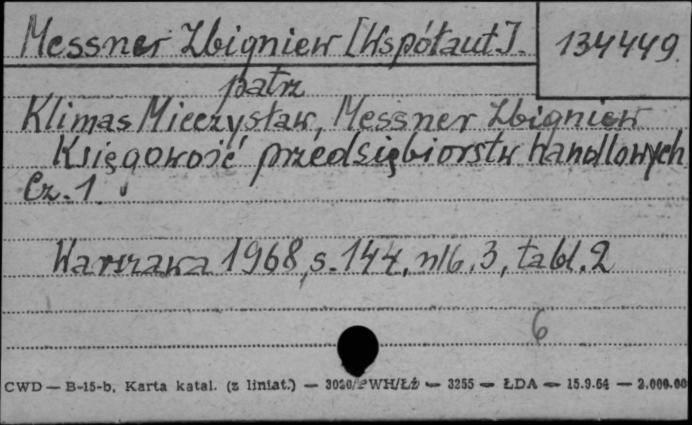 Messner Zbigniew [Współaut.]. 134449.
patrz
Klimas Mieczysław, Messner Zbigniew
Księgowość przedsiębiorstw handlowych
Cz. 1.
Warszawa 1968, s. 144, nlb. 3, tabl. 2
6
CWD — B-15-b, Karta katal. (z liniat.) — 3020/PWH/Łż — 3255 — ŁDA — 15.9.64 — 2.000.00